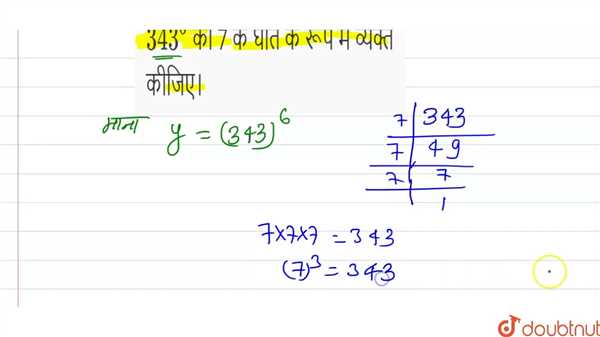 343⁶ को 7 के घात के रूप में व्यक्त
कीजिए।
माना y = (343)⁶
7 | 343
7 | 49
7 | 7
1
7×7×7 = 343
(7)³ = 343
doubtnut